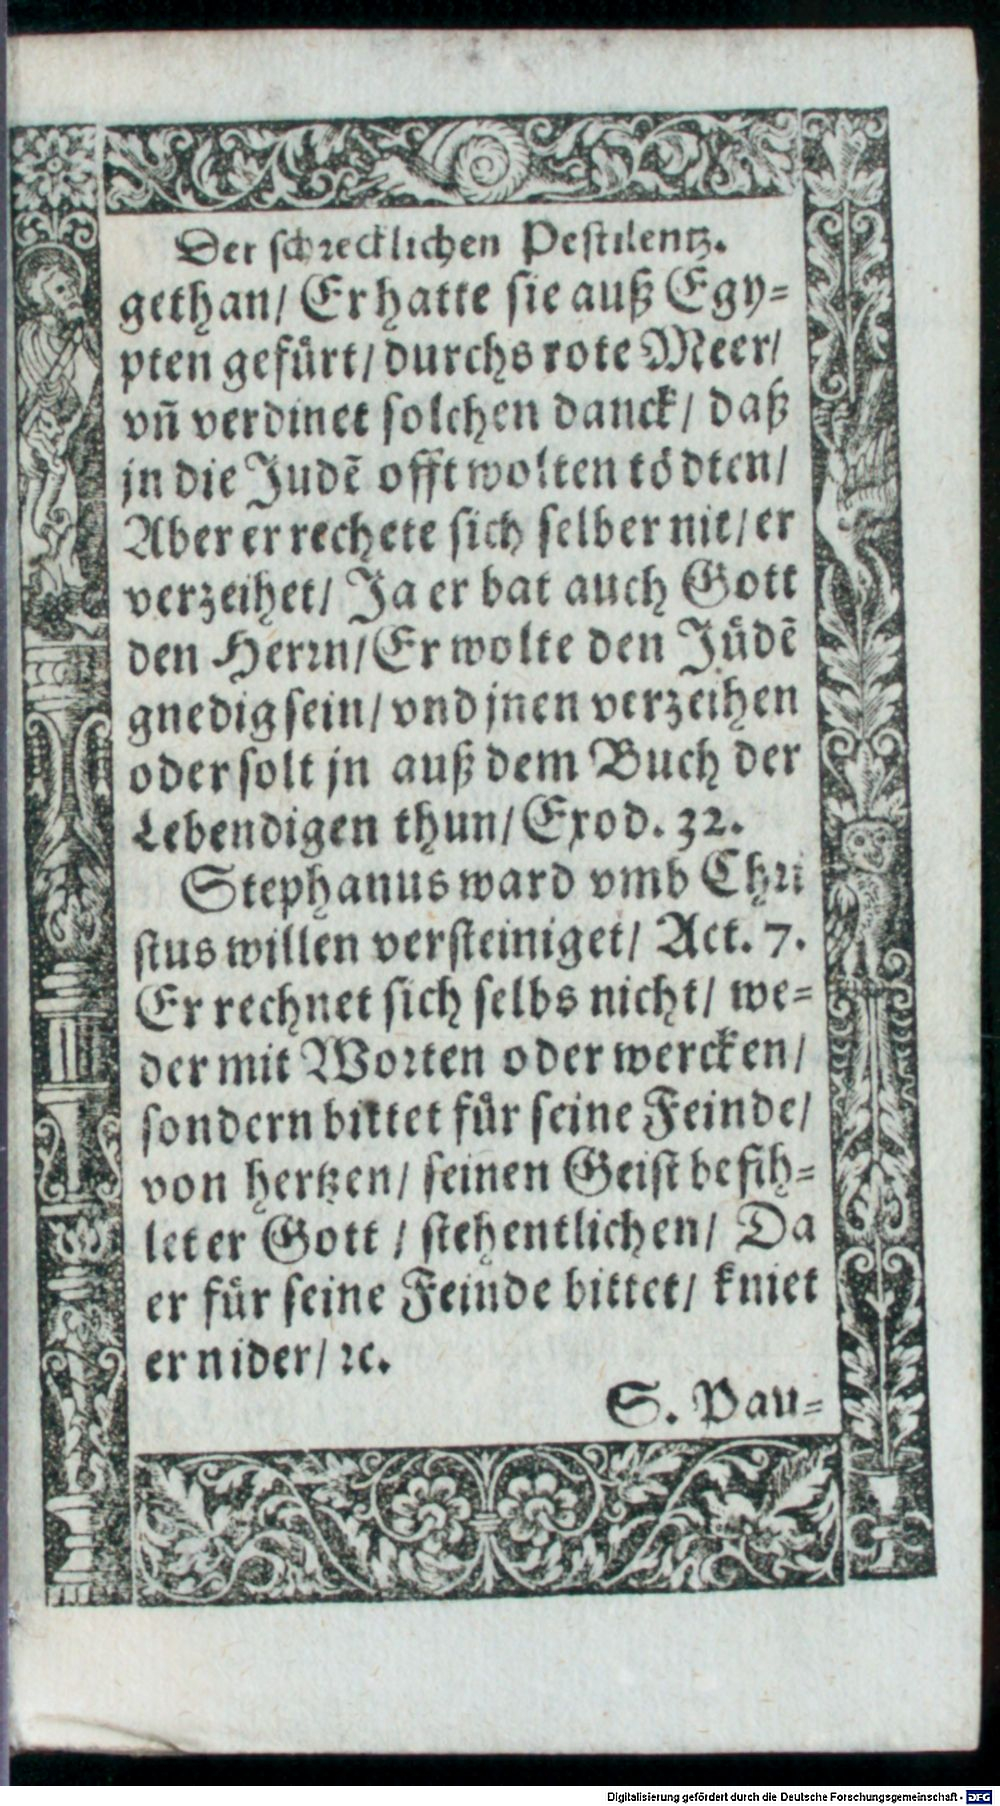 Der schrecklichen Pestilentz.
gethan/ Er hatte sie auß Egy=
pten gefürt/ durchs rote Meer/
vñ verdinet solchen danck/ daß
jn die Judẽ offt wolten tödten/
Aber er rechete sich selber nit/ er
verzeihet/ Ja er bat auch Gott
den Herrn/ Er wolte den Jüdẽ
gnedig sein/ vnd jnen verzeihen
oder solt jn auß dem Buch der
Lebendigen thun/ Exod. 32.
Stephanus ward vmb Chri
stus willen versteiniget/ Act. 7.
Er rechnet sich selbs nicht/ we=
der mit Worten oder wercken/
sondern bittet für seine Feinde/
von hertzen/ seinen Geist befih=
let er Gott/ stehentlichen/ Da
er für seine Feinde bittet/ kniet
er nider/ ꝛc.
S. Pau=
Digitalisierung gefördert durch die Deutsche Forschungsgemeinschaft - DFG